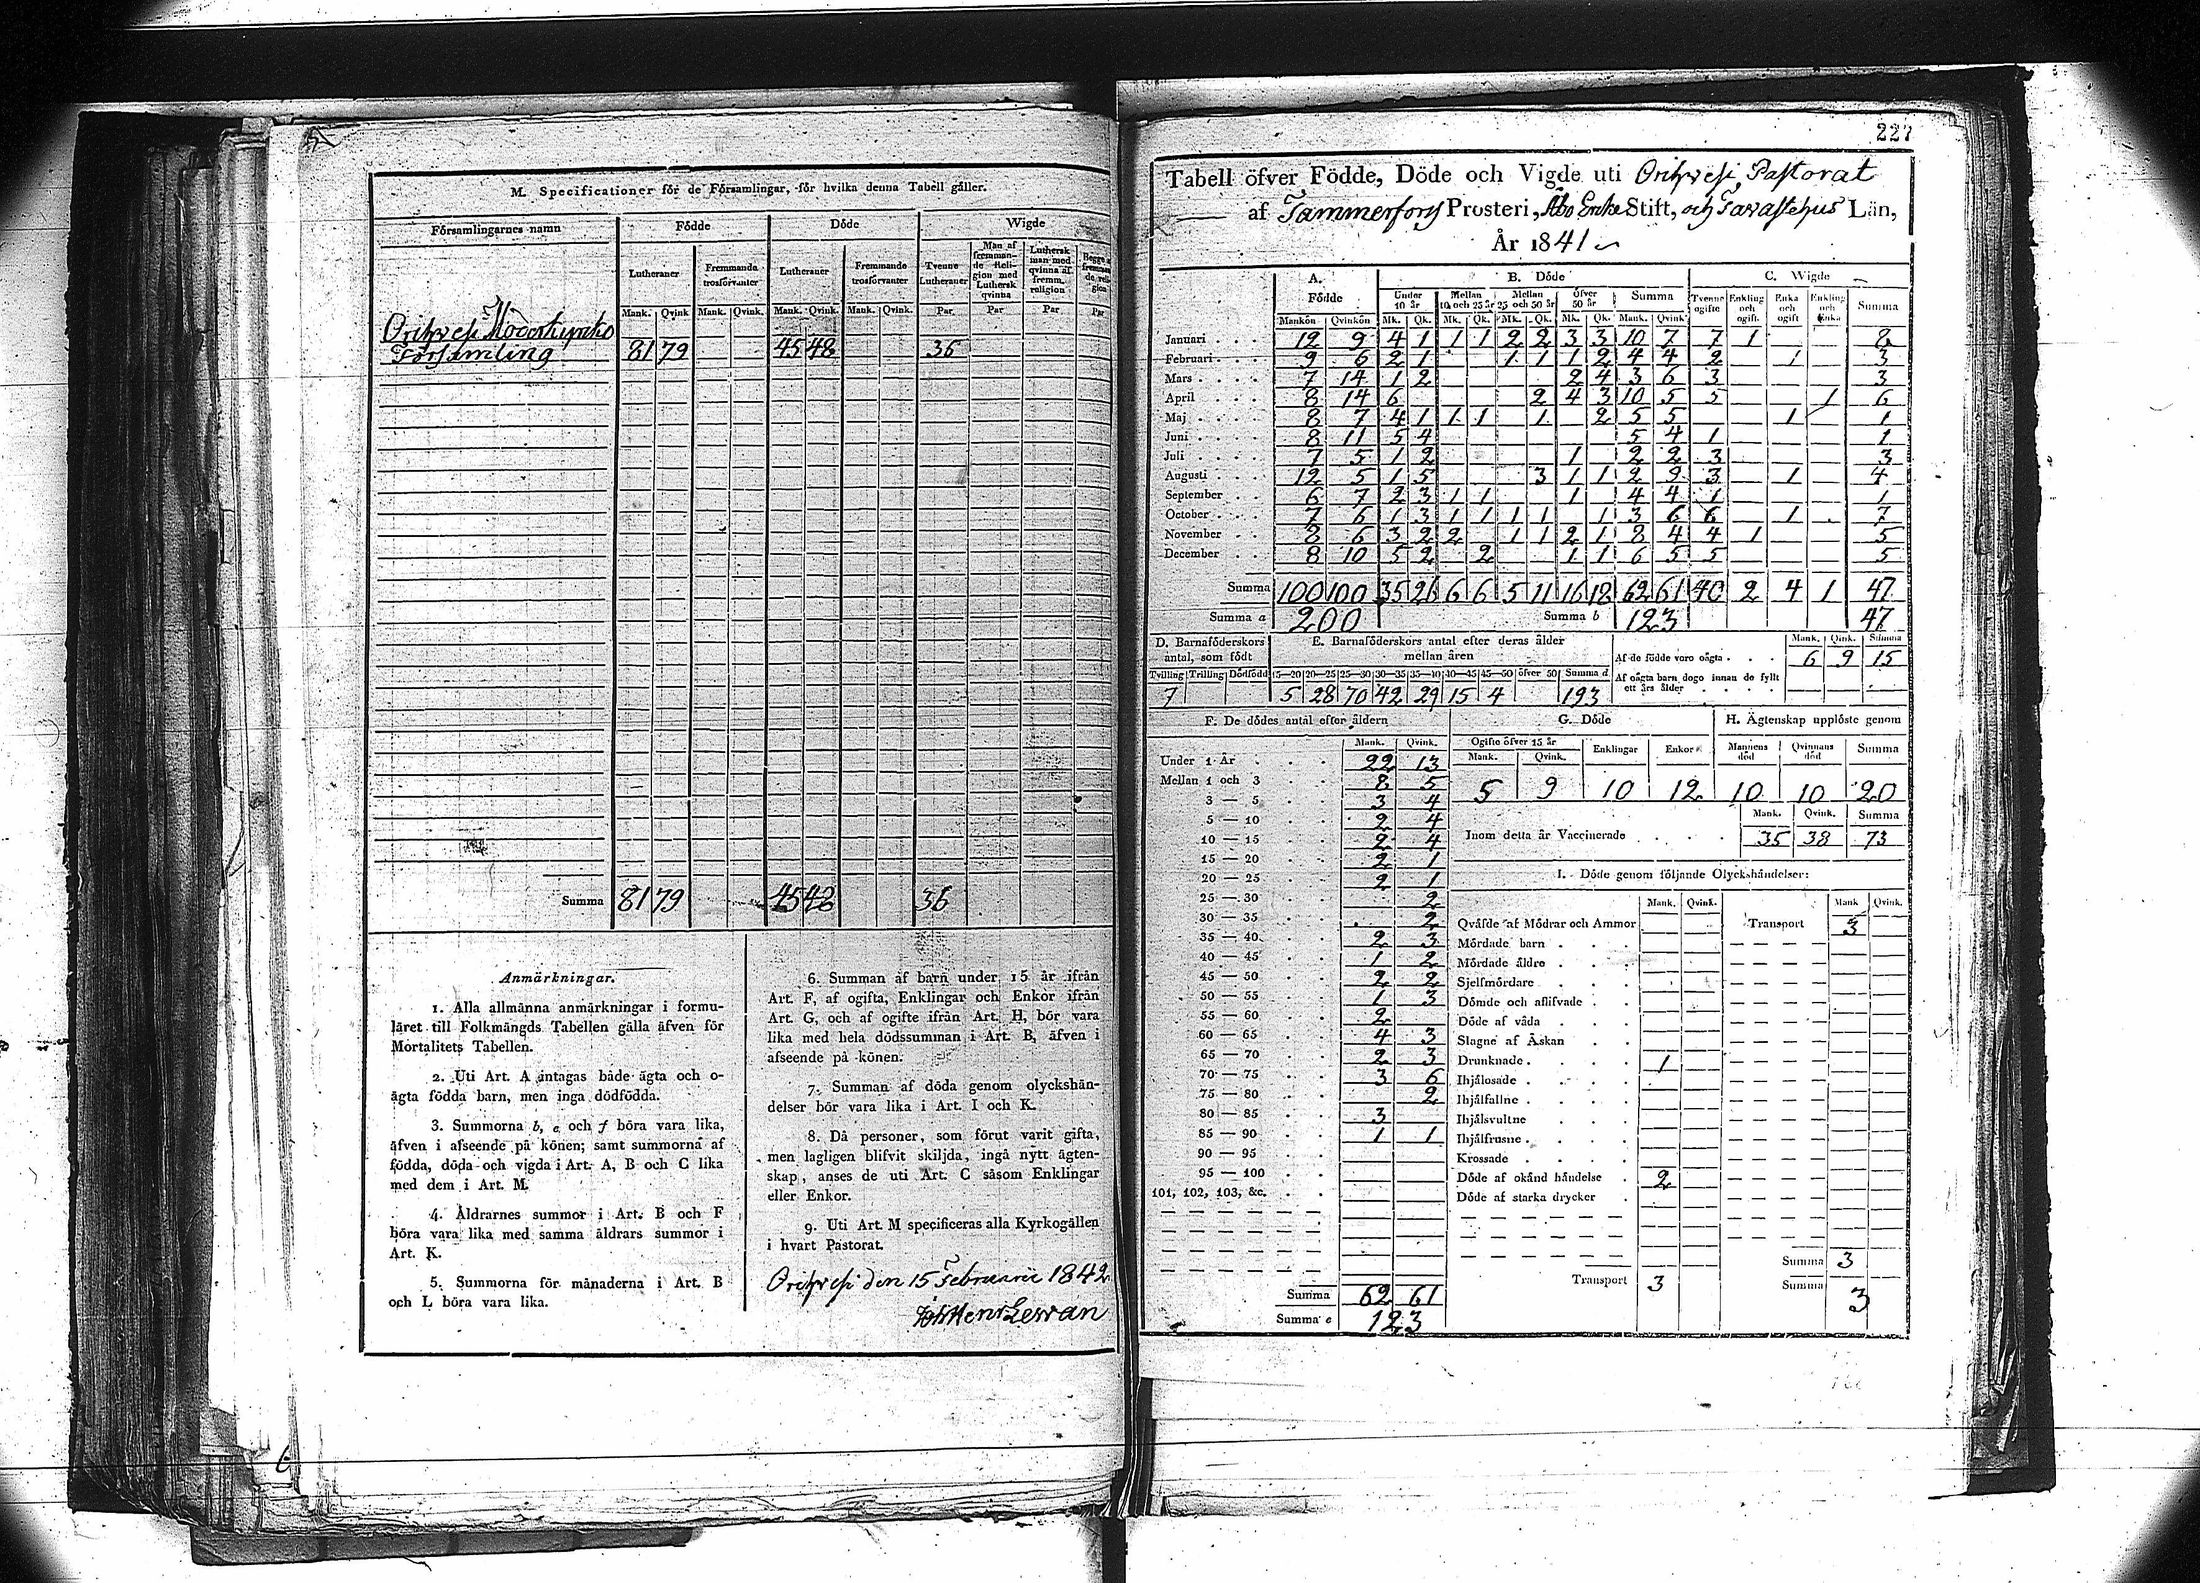 M. Specificationer för de Församlingar, för hvilka denna Tabell gäller.
Församlingarnes namn Födde Döde Wigde
Lutheraner Fremmande trosförvanter Lutheraner Fremmande trosförvanter Tvenne Lutheraner Man af fremmande Religion med Luthersk qvinna Luthersk man med qvinna af fremm. religion
Mank. Qvink. Mank. Qvink. Mank. Qvink. Mank. Qvink. Par. Par Par Par
Orihvesi Moderkyrko
Församling 81 79 45 48 36
Summa 81 79 45 48 36
Anmärkningar.
1. Alla allmänna anmärkningar i formu-
läret till Folkmängds Tabellen gälla äfven för
Mortalitets Tabellen.
2. Uti Art. A intagas både ägta och o-
ägta födda barn, men inga dödfödda.
3. Summorna b, e och f böra vara lika,
äfven i afseende på könen; samt summorna af
födda, döda och vigda i Art. A, B och C lika
med dem i Art. M.
4. Åldrarnes summor i Art. B och F
böra vara lika med samma åldrars summor i
Art. K.
5. Summorna för månaderna i Art. B
och L böra vara lika.
6. Summan af barn under 15 år ifrån
Art. F, af ogifta, Enklingar och Enkor ifrån
Art. G, och af ogifte ifrån Art. H, bör vara
lika med hela dödssumman i Art. B, äfven i
afseende på könen.
7. Summan af döda genom olyckshän-
delser bör vara lika i Art. I och K.
8. Då personer, som förut varit gifta,
men lagligen blifvit skiljda, ingå nytt ägten-
skap, anses de uti Art. C såsom Enklingar
eller Enkor.
9. Uti Art. M specificeras alla Kyrkogällen
i hvart Pastorat.
Orihvesi den 15 Februarii 1842
227
Tabell öfver Födde, Döde och Vigde uti Orihvesi Pastorat
af Tammerfors Prosteri, Åbo Erke Stift, och Tavastehus Län,
År 1841
A. Födde B. Döde C. Wigde
Under 10 år Mellan 10 och 25 år Mellan 25 och 50 år Öfver 50 år Summa Tvenne ogifte Enkling och ogift. Enka och ogift Enkling och Enka Summa
Mankön Qvinkön Mk. Qk. Mk. Qk. Mk. Qk. Mk. Qk. Mank. Qvink
Januari 12 9 4 1 1 1 2 2 3 3 10 7 7 1 8
Februari 9 6 2 1 1 1 1 2 4 4 2 1 3
Mars 7 14 1 2 2 4 3 6 3 3
April 8 14 6 2 4 3 10 5 5 1 6
Maj 8 7 4 1 1 1 1 2 5 5 1 1
Juni 8 11 5 4 5 4 1 1
Juli 7 5 1 2 1 2 2 3 3
Augusti 12 5 1 5 3 1 1 2 9 3 1 4
September 6 7 2 3 1 1 1 4 4 1 1
October 7 6 1 3 1 1 1 1 1 3 6 6 1 7
November 8 6 3 2 2 1 1 2 1 8 4 4 1 5
December 8 10 5 2 2 1 1 6 5 5 5
Summa 100 100 35 26 6 6 5 11 16 18 62 61 40 2 4 1 47
Summa a 200 Summa b 123 47
D. Barnaföderskors antal, som födt
Tvilling Trilling Dödfödd
7
E. Barnaföderskors antal efter deras ålder
mellan åren
15—20 20—25 25—30 30—35 35—40 40—45 45—50 öfver 50 Summa d
5 28 70 42 29 15 4 193
Mank. Qink. Summa
Af de födde voro oägta 6 9 15
Af oägta barn dogo innan de fyllt
ett års ålder
F. De dödes antal efter åldern
Mank. Qvink.
Under 1 År 22 13
Mellan 1 och 3 8 5
3 — 5 3 4
5 — 10 2 4
10 — 15 2 4
15 — 20 2 1
20 — 25 2 1
25 — 30 2
30 — 35 2
35 — 40 2 3
40 — 45 1 2
45 — 50 2 2
50 — 55 1 3
55 — 60 2
60 — 65 4 3
65 — 70 2 3
70 — 75 3 6
75 — 80 2
80 — 85 3
85 — 90 1 1
90 — 95
95 — 100
101, 102, 103, &c.
Summa 62 61
Summa e 123
G. Döde
Ogifte öfver 15 år Enklingar Enkor
Mank. Qvink.
5 9 10 12
H. Ägtenskap upplöste genom
Mannens död Qvinnans död Summa
10 10 20
Mank. Qvink. Summa
Inom detta år Vaccinerade 35 38 73
I. Döde genom följande Olyckshändelser:
Mank. Qvink. Mank Qvink.
Qväfde af Mödrar och Ammor Transport 3
Mördade barn
Mördade äldre
Sjelfmördare
Dömde och aflifvade
Döde af våda
Slagne af Åskan
Drunknade 1
Ihjälosade
Ihjälfallne
Ihjälsvultne
Ihjälfrusne
Krossade
Döde af okänd händelse 2
Döde af starka drycker
Summa 3
Transport 3 Summa 3